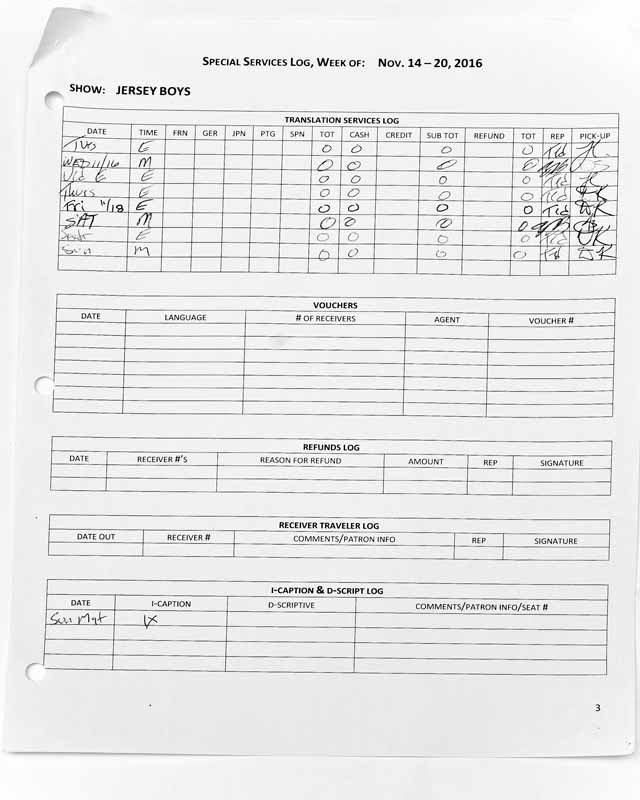 SPECIAL SERVICES LOG, WEEK OF: NOV. 14 – 20, 2016
SHOW: JERSEY BOYS
TRANSLATION SERVICES LOG
DATE TIME FRN GER JPN PTG SPN TOT CASH CREDIT SUB TOT REFUND TOT REP PICK-UP
Tues E 0 0 0 0 Tid
WED 11/16 M 0 0 0 0
E 0 0 0 0 Tid
Thurs E 0 0 0 0 Tid
Fri 11/18 E 0 0 0 0 Tid
SAT M 0 0 0 0
E 0 0 0 0 Tid
Sun M 0 0 0 0
VOUCHERS
DATE LANGUAGE # OF RECEIVERS AGENT VOUCHER #
REFUNDS LOG
DATE RECEIVER #'S REASON FOR REFUND AMOUNT REP SIGNATURE
RECEIVER TRAVELER LOG
DATE OUT RECEIVER # COMMENTS/PATRON INFO REP SIGNATURE
I-CAPTION & D-SCRIPT LOG
DATE I-CAPTION D-SCRIPTIVE COMMENTS/PATRON INFO/SEAT #
Sun Mat 1x
3